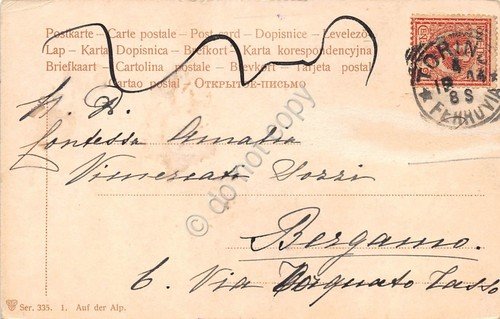 Postkarte - Carte postale - Post card - Dopisnice - Levelező
Lap - Karta Dopisnica - Brefkort - Karta korespondencyjna
Briefkaart - Cartolina postale - Brevkort - Tarjeta postal
Cartao postal - ОТКРЫТОЕ-ПИСЬМО
TORINO
FERROVIA
8 S
N. D.
Contessa Amalia
Vimercato Sozzi
Bergamo.
6. Via Torquato Tasso
© do not copy
Ser. 335. 1. Auf der Alp.